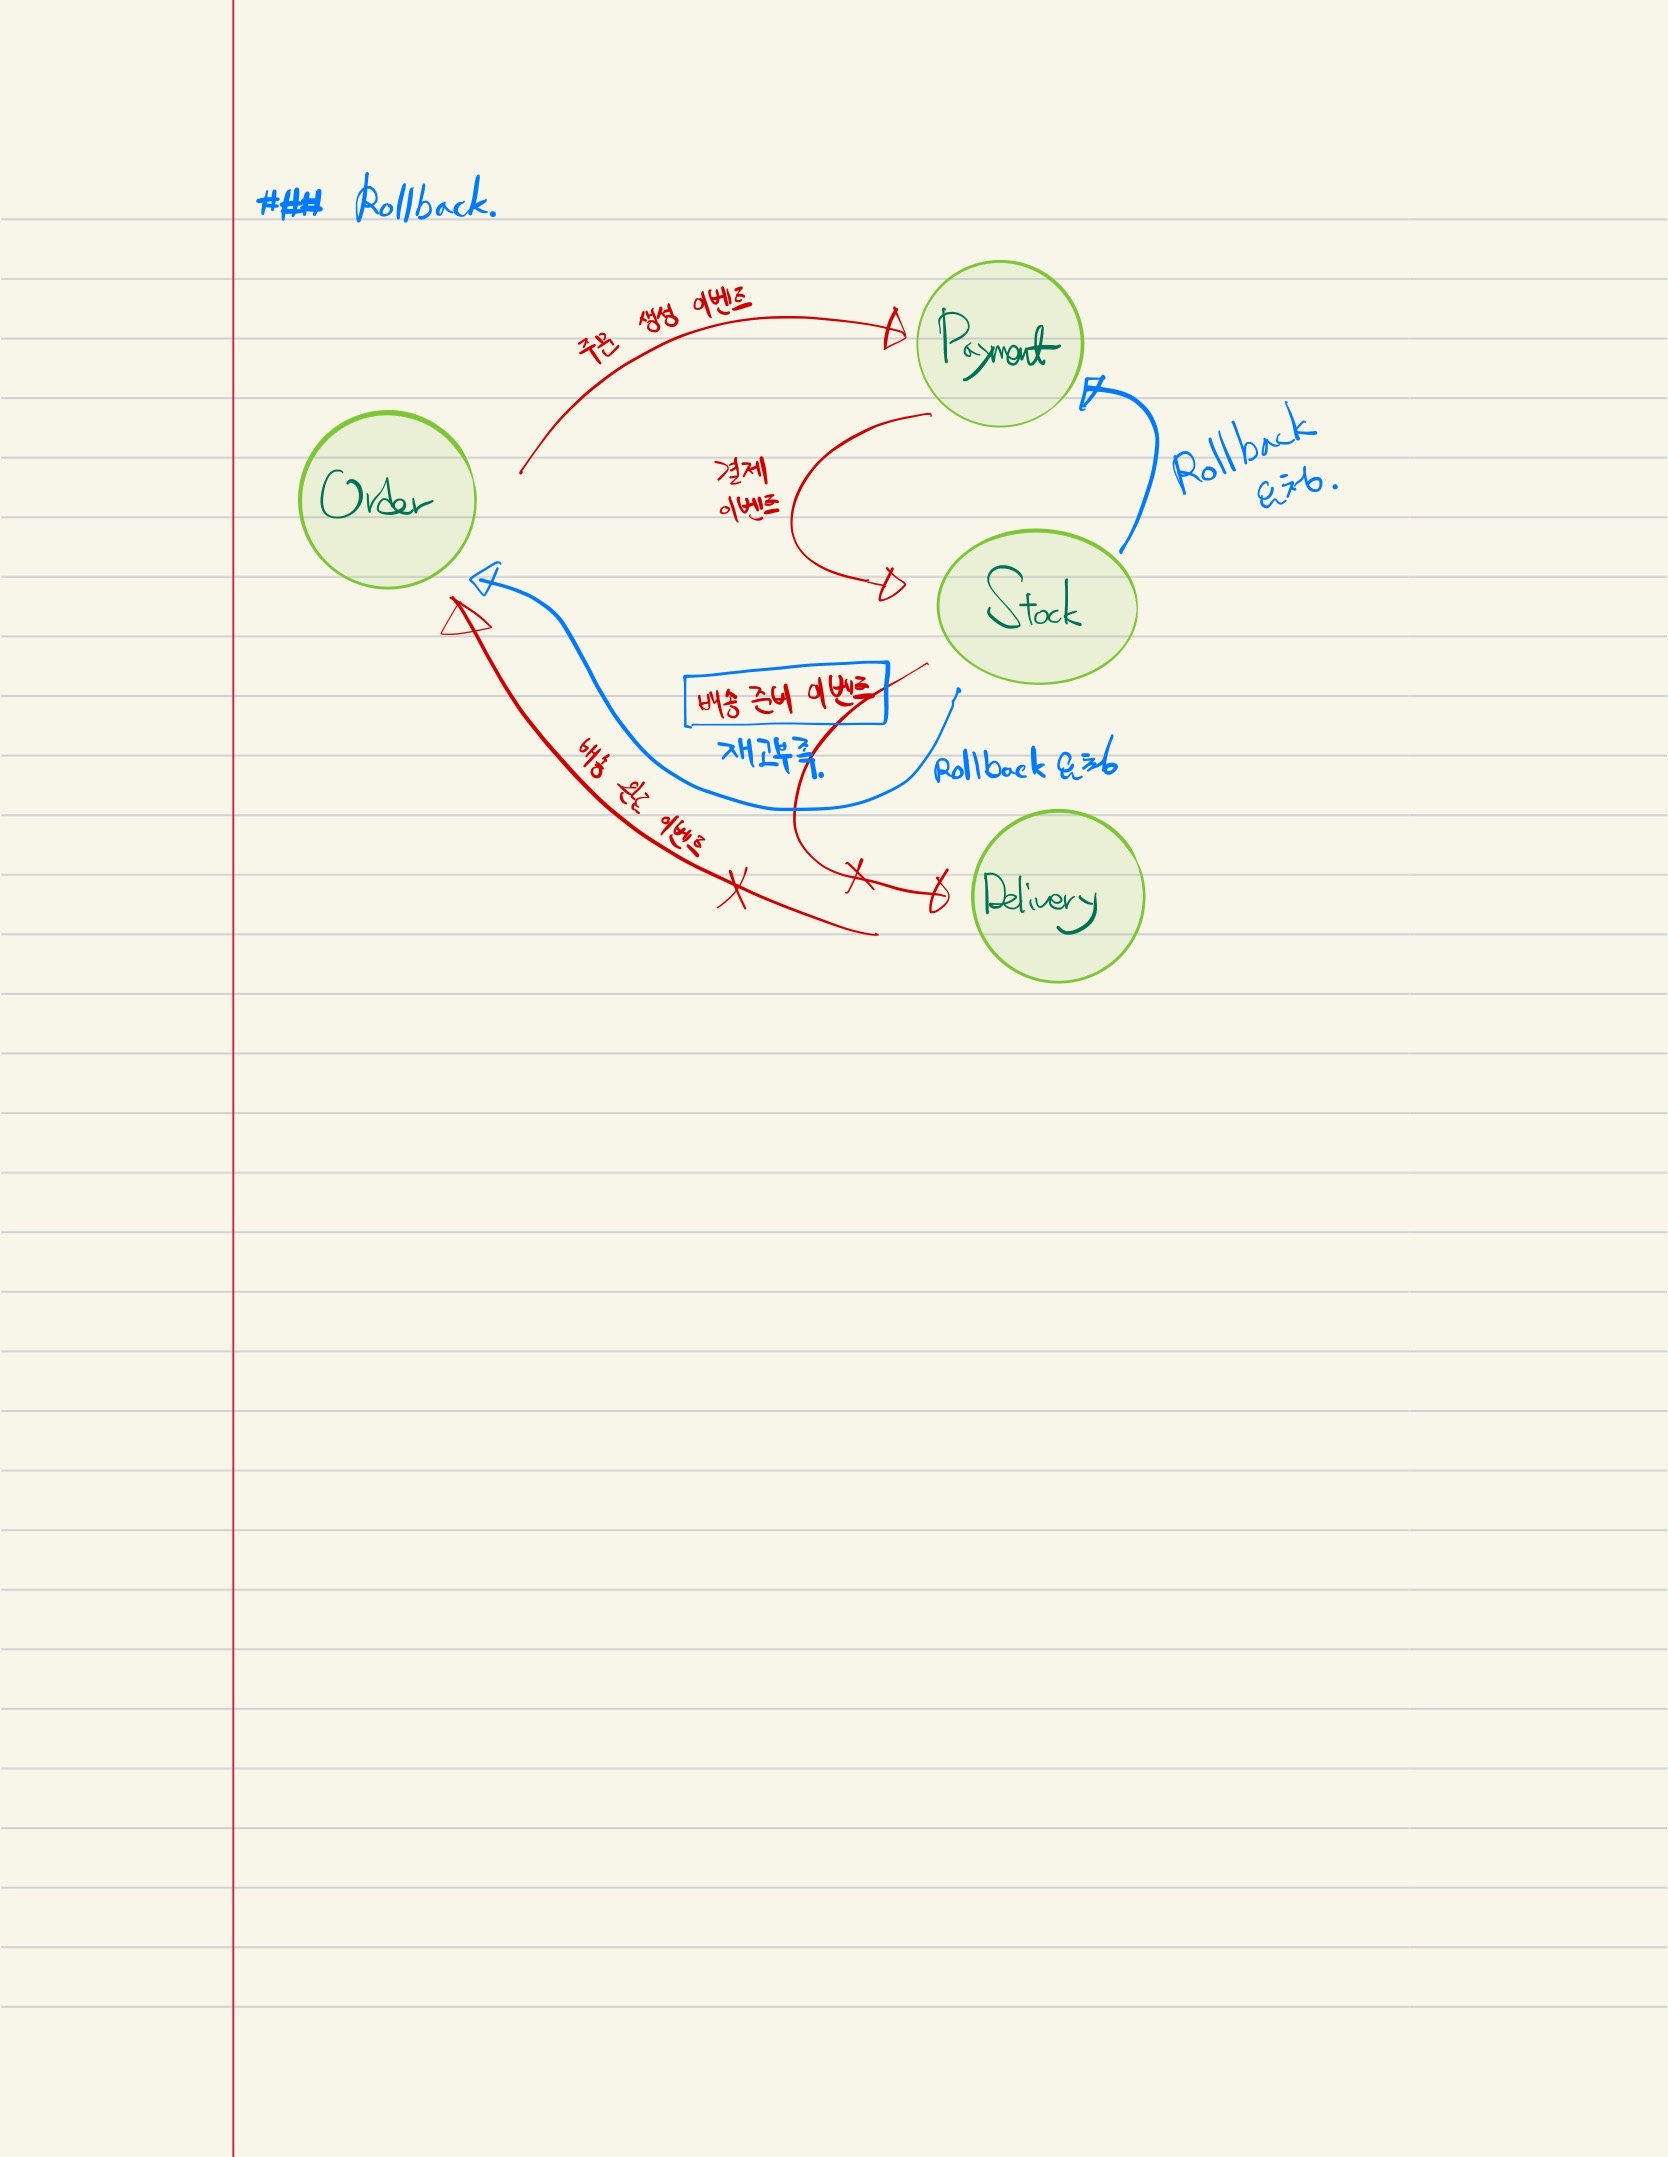 ### Rollback.
주문 생성 이벤트
Payment
Order
결제
이벤트
Rollback
요청.
Stock
배송 준비 이벤트
재고부족.
Rollback 요청
배송 완료 이벤트
Delivery